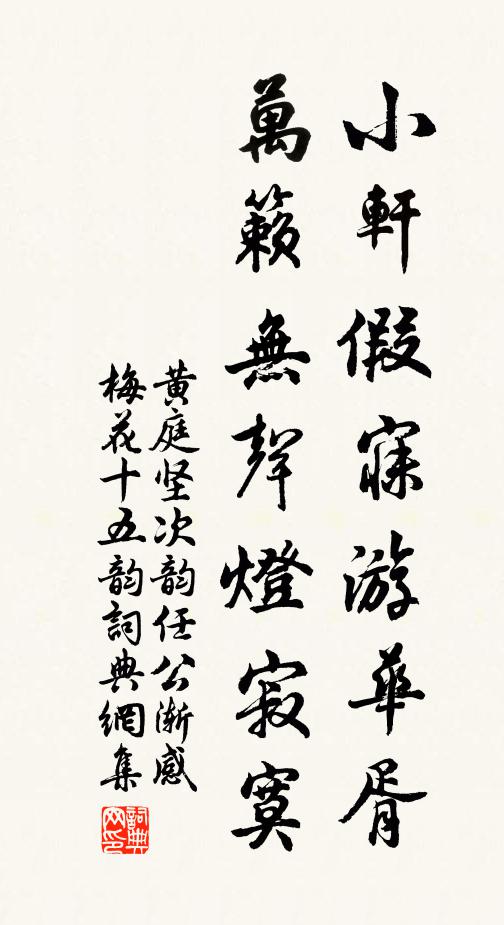 小軒假寐游華胥
萬籟無聲燈寂寞
黄庭坚次韵任公渐感
梅花十五韵詞典網集
詞典
网印